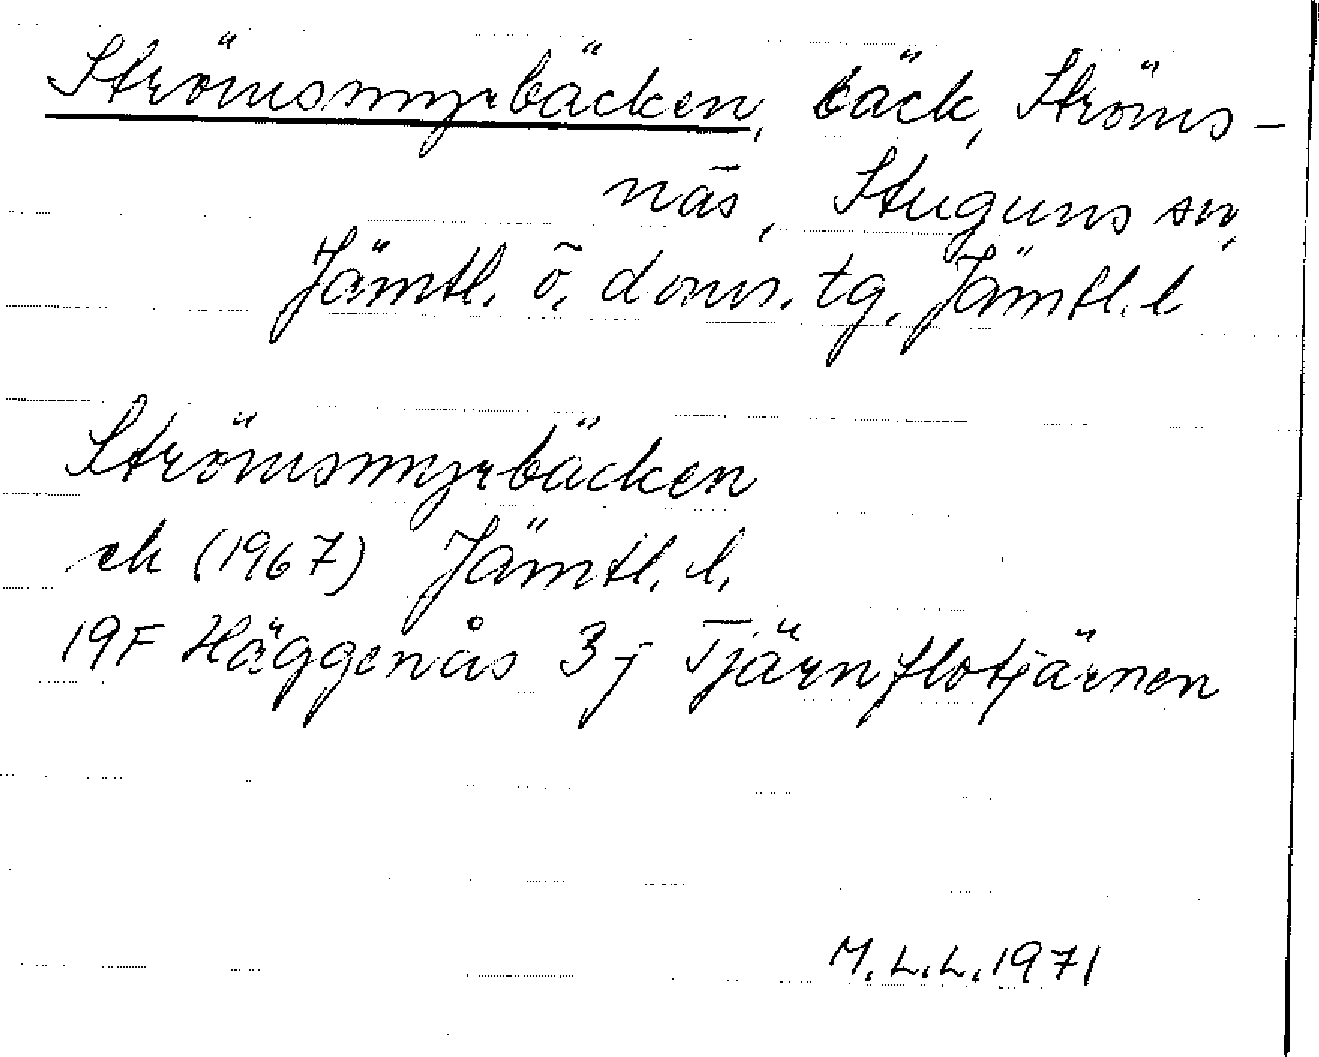 Strömsmyrbäcken, bäck, Ströms-
näs, Stuguns sn,
Jämtl. ö. doms. tg, Jämtl. l
Strömsmyrbäcken
ek (1967) Jämtl. l.
19F Häggenås 3j Tjärnflotjärnen
M.L.L. 1971